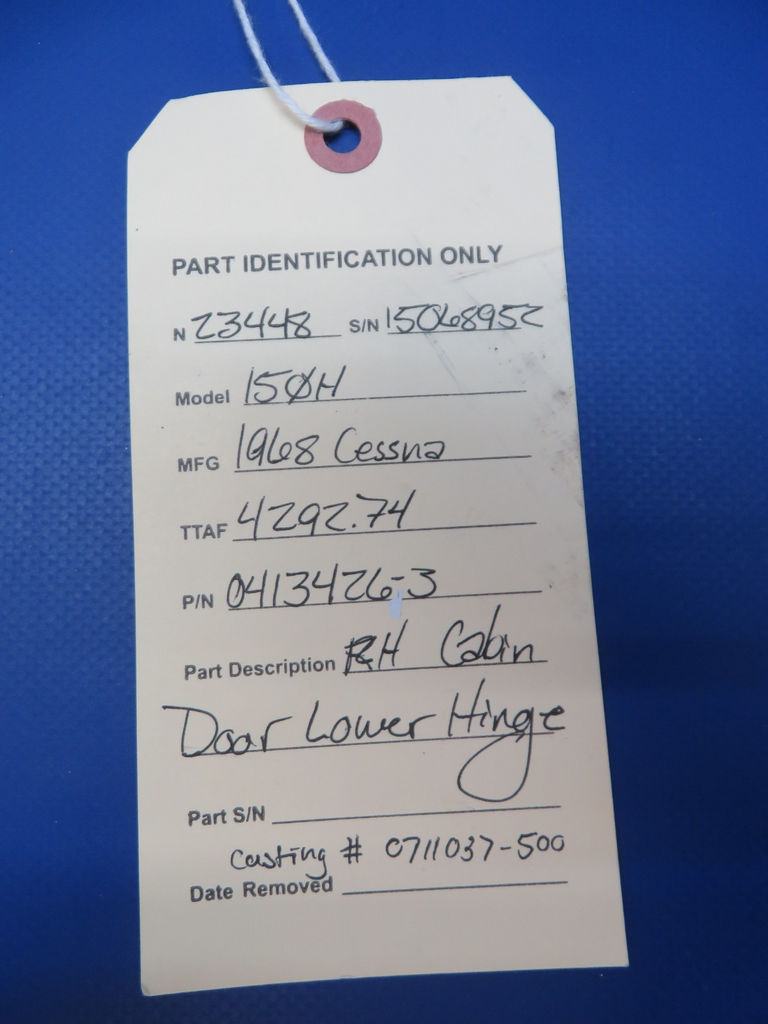 PART IDENTIFICATION ONLY
N 23448 S/N 15068952
Model 150H
MFG 1968 Cessna
TTAF 4292.74
P/N 0413426-3
Part Description RH Cabin
Door Lower Hinge
Part S/N
Casting # 0711037-500
Date Removed